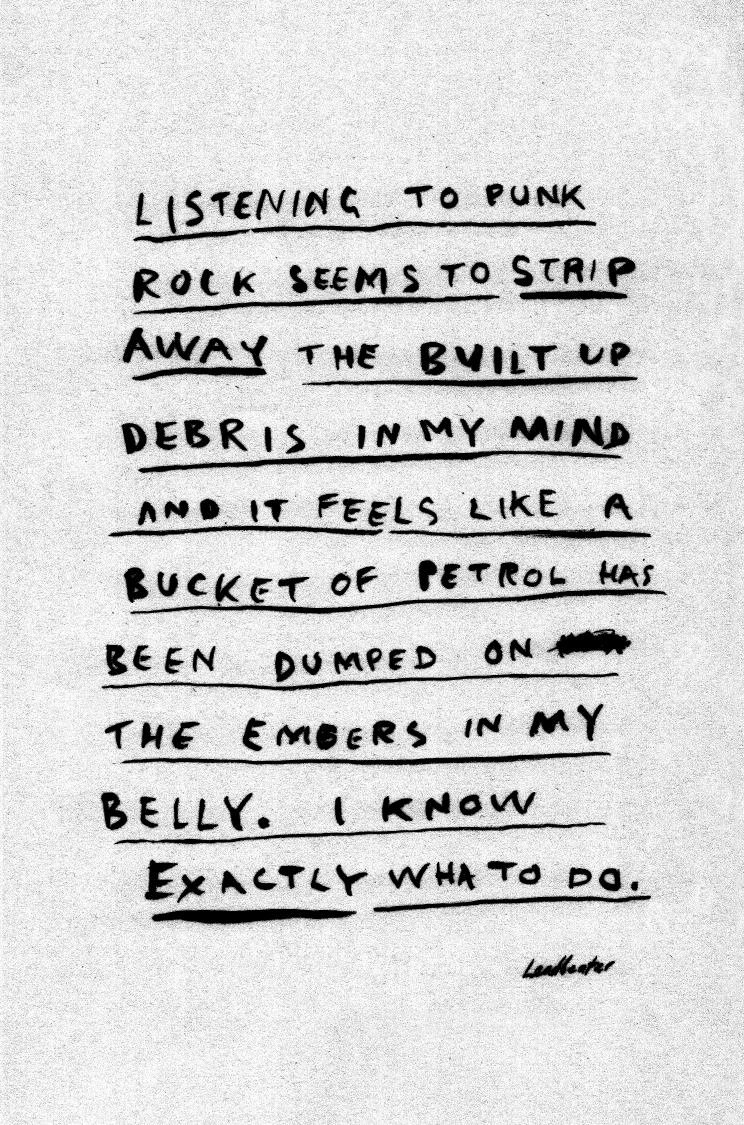 LISTENING TO PUNK
ROCK SEEMS TO STRIP
AWAY THE BUILT UP
DEBRIS IN MY MIND
AND IT FEELS LIKE A
BUCKET OF PETROL HAS
BEEN DUMPED ON
THE EMBERS IN MY
BELLY. I KNOW
EXACTLY WHA TO DO.